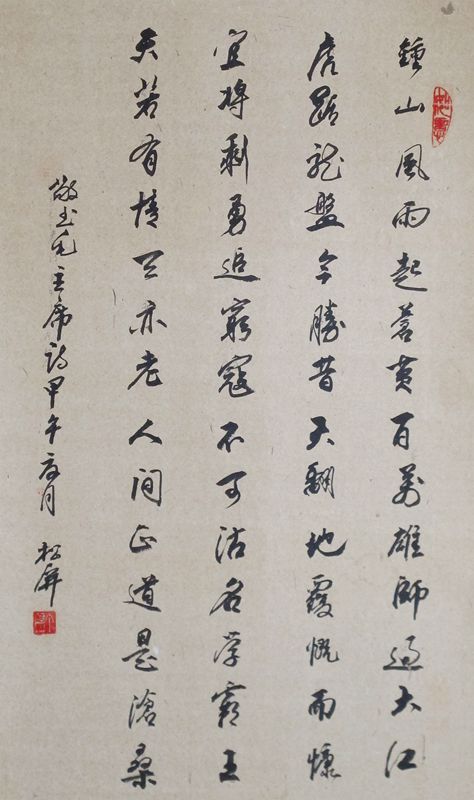 鍾山風雨起蒼黄百萬雄師過大江
虎踞龍盤今勝昔天翻地覆慨而慷
宜將剩勇追窮寇不可沽名学霸王
天若有情天亦老人间正道是滄桑
敬书毛主席詩甲午夏月 松屏